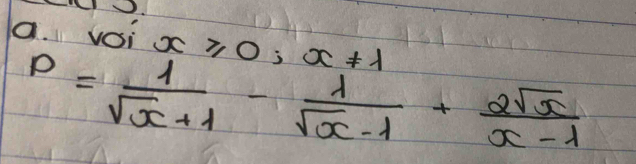 a. với x ≥ 0 ; x ≠ 1
P = 1/(√x + 1) - 1/(√x - 1) + 2√x/(x - 1)